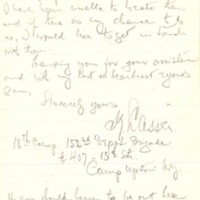 I have been unable to locate them
and if there is any chance to do
so, I would like to get in touch
with them.
Thanking you for your assistance
and with my best regards
I am,
Sincerely yours
Casser
18th Comp. 152nd Depot Brigade
E 407 13th St.
Camp Upton N.Y.
If you should happen to be out here